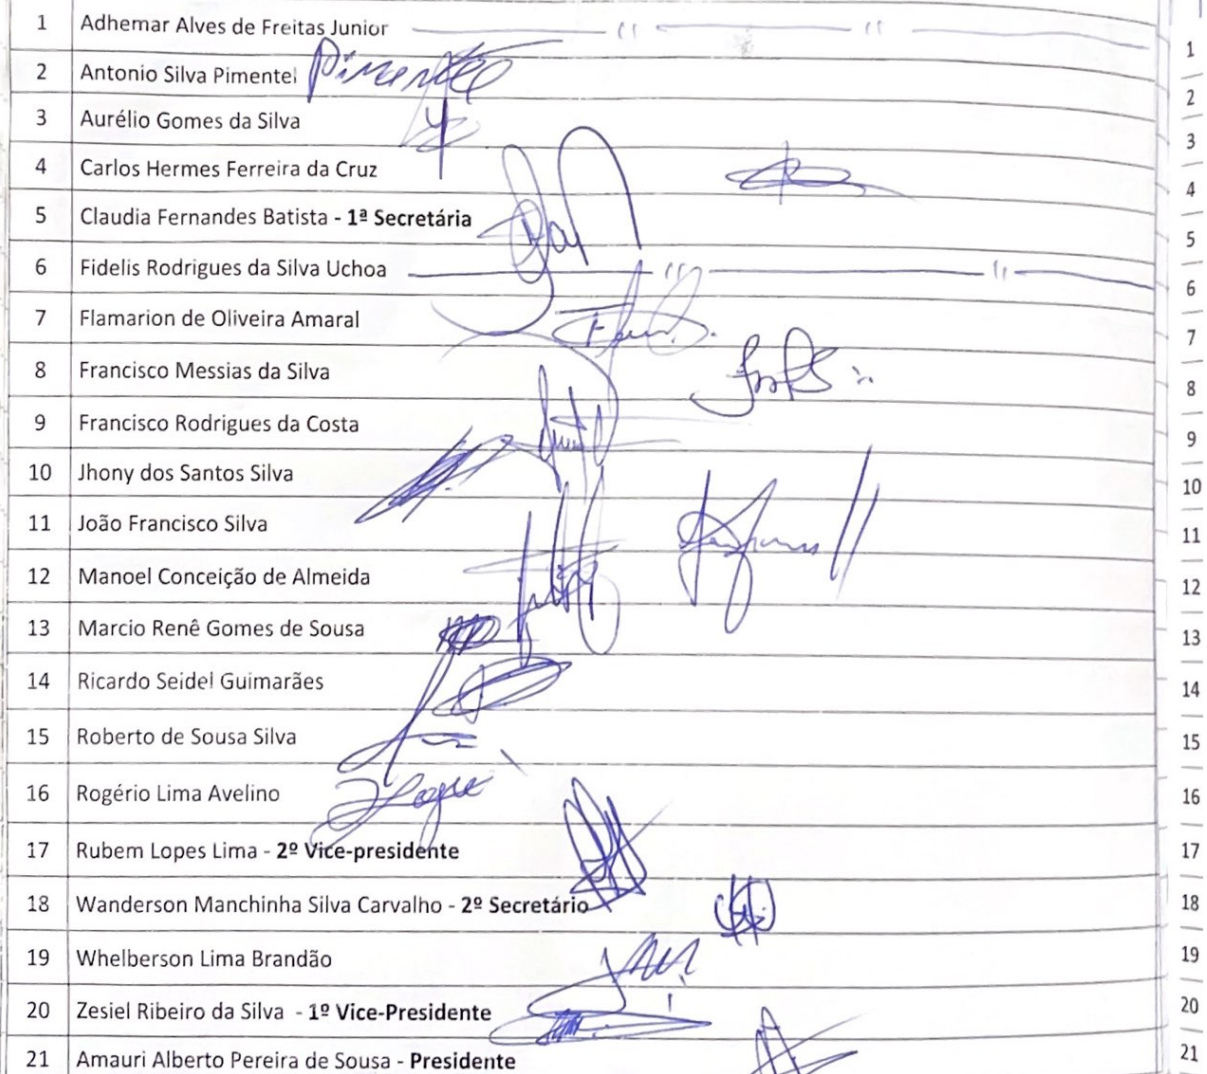 1 Adhemar Alves de Freitas Junior 1
2 Antonio Silva Pimentel Pimentel 2
3 Aurélio Gomes da Silva 3
4 Carlos Hermes Ferreira da Cruz 4
5 Claudia Fernandes Batista - 1ª Secretária 5
6 Fidelis Rodrigues da Silva Uchoa 6
7 Flamarion de Oliveira Amaral 7
8 Francisco Messias da Silva 8
9 Francisco Rodrigues da Costa 9
10 Jhony dos Santos Silva 10
11 João Francisco Silva 11
12 Manoel Conceição de Almeida 12
13 Marcio Renê Gomes de Sousa 13
14 Ricardo Seidel Guimarães 14
15 Roberto de Sousa Silva 15
16 Rogério Lima Avelino 16
17 Rubem Lopes Lima - 2º Vice-presidente 17
18 Wanderson Manchinha Silva Carvalho - 2º Secretário 18
19 Whelberson Lima Brandão 19
20 Zesiel Ribeiro da Silva - 1º Vice-Presidente 20
21 Amauri Alberto Pereira de Sousa - Presidente 21